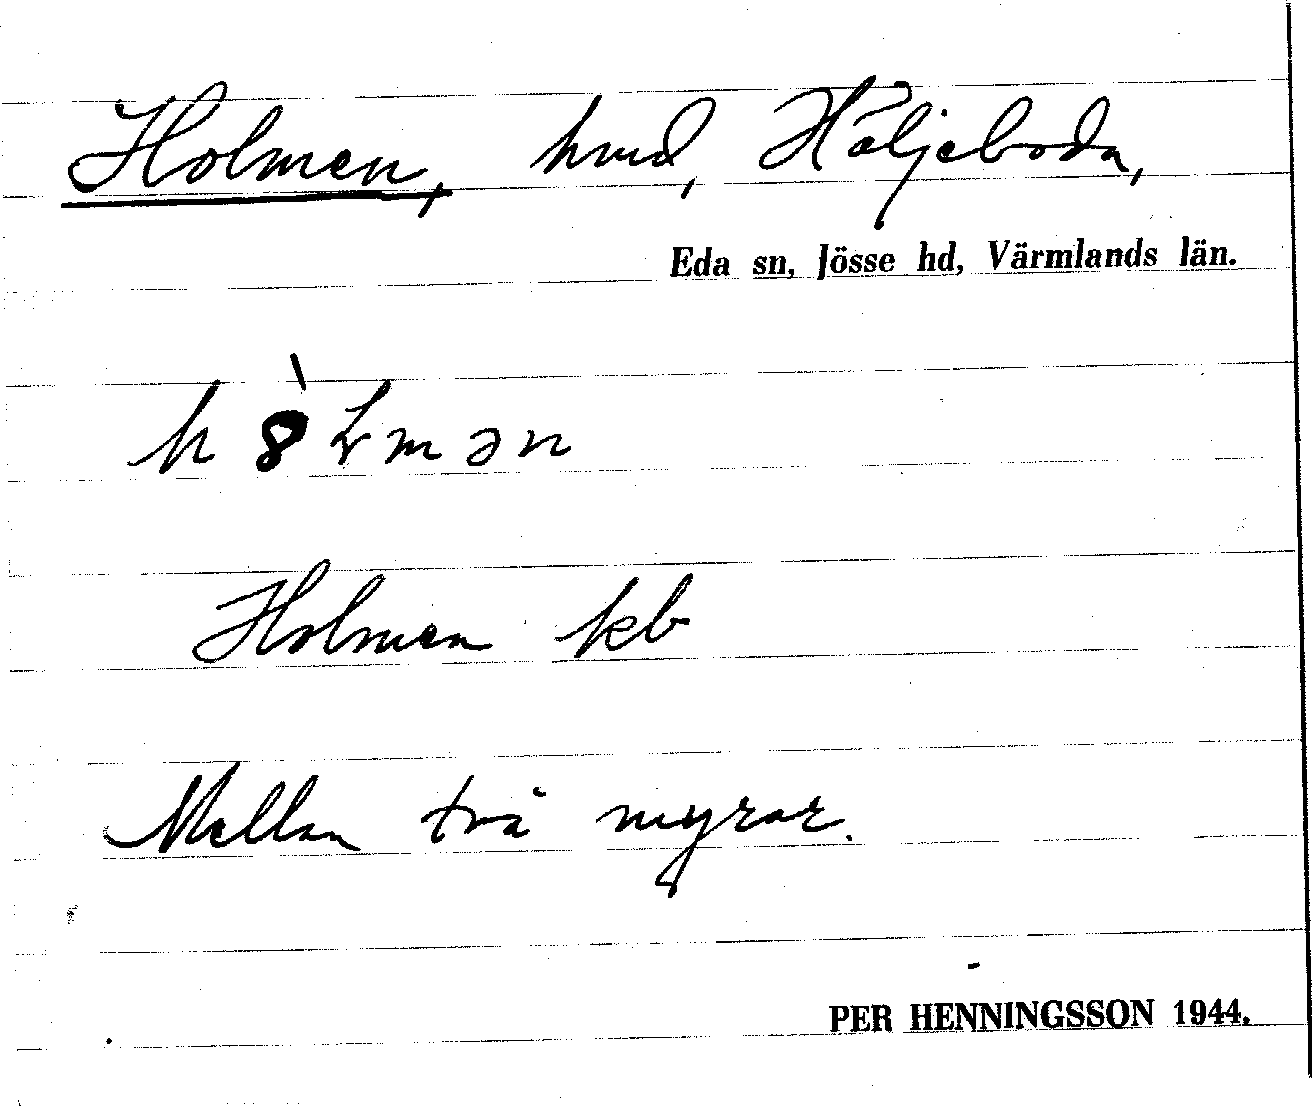 Holmen, hmd, Häljeboda,
Eda sn, Jösse hd, Värmlands län.
Holmen kb
Mellan två myrar.
PER HENNINGSSON 1944.